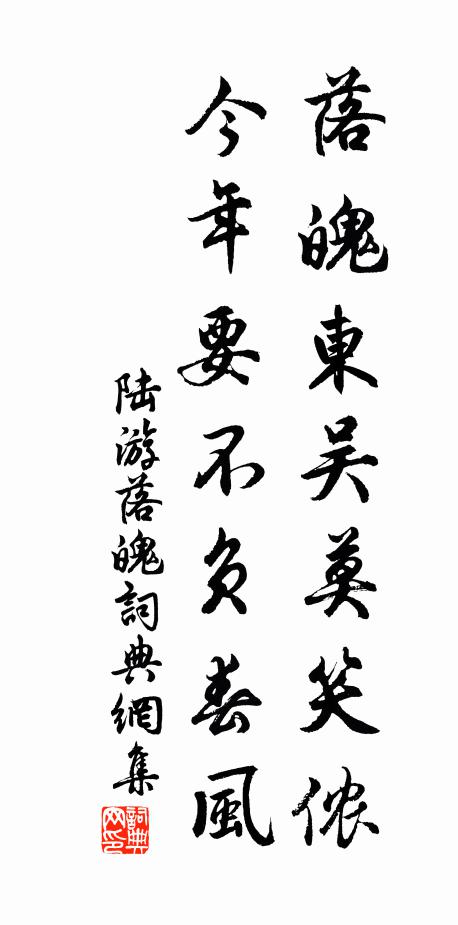 落魄東吴莫笑侬
今年要不负春風
陆游落魄詞典網集
詞典網印